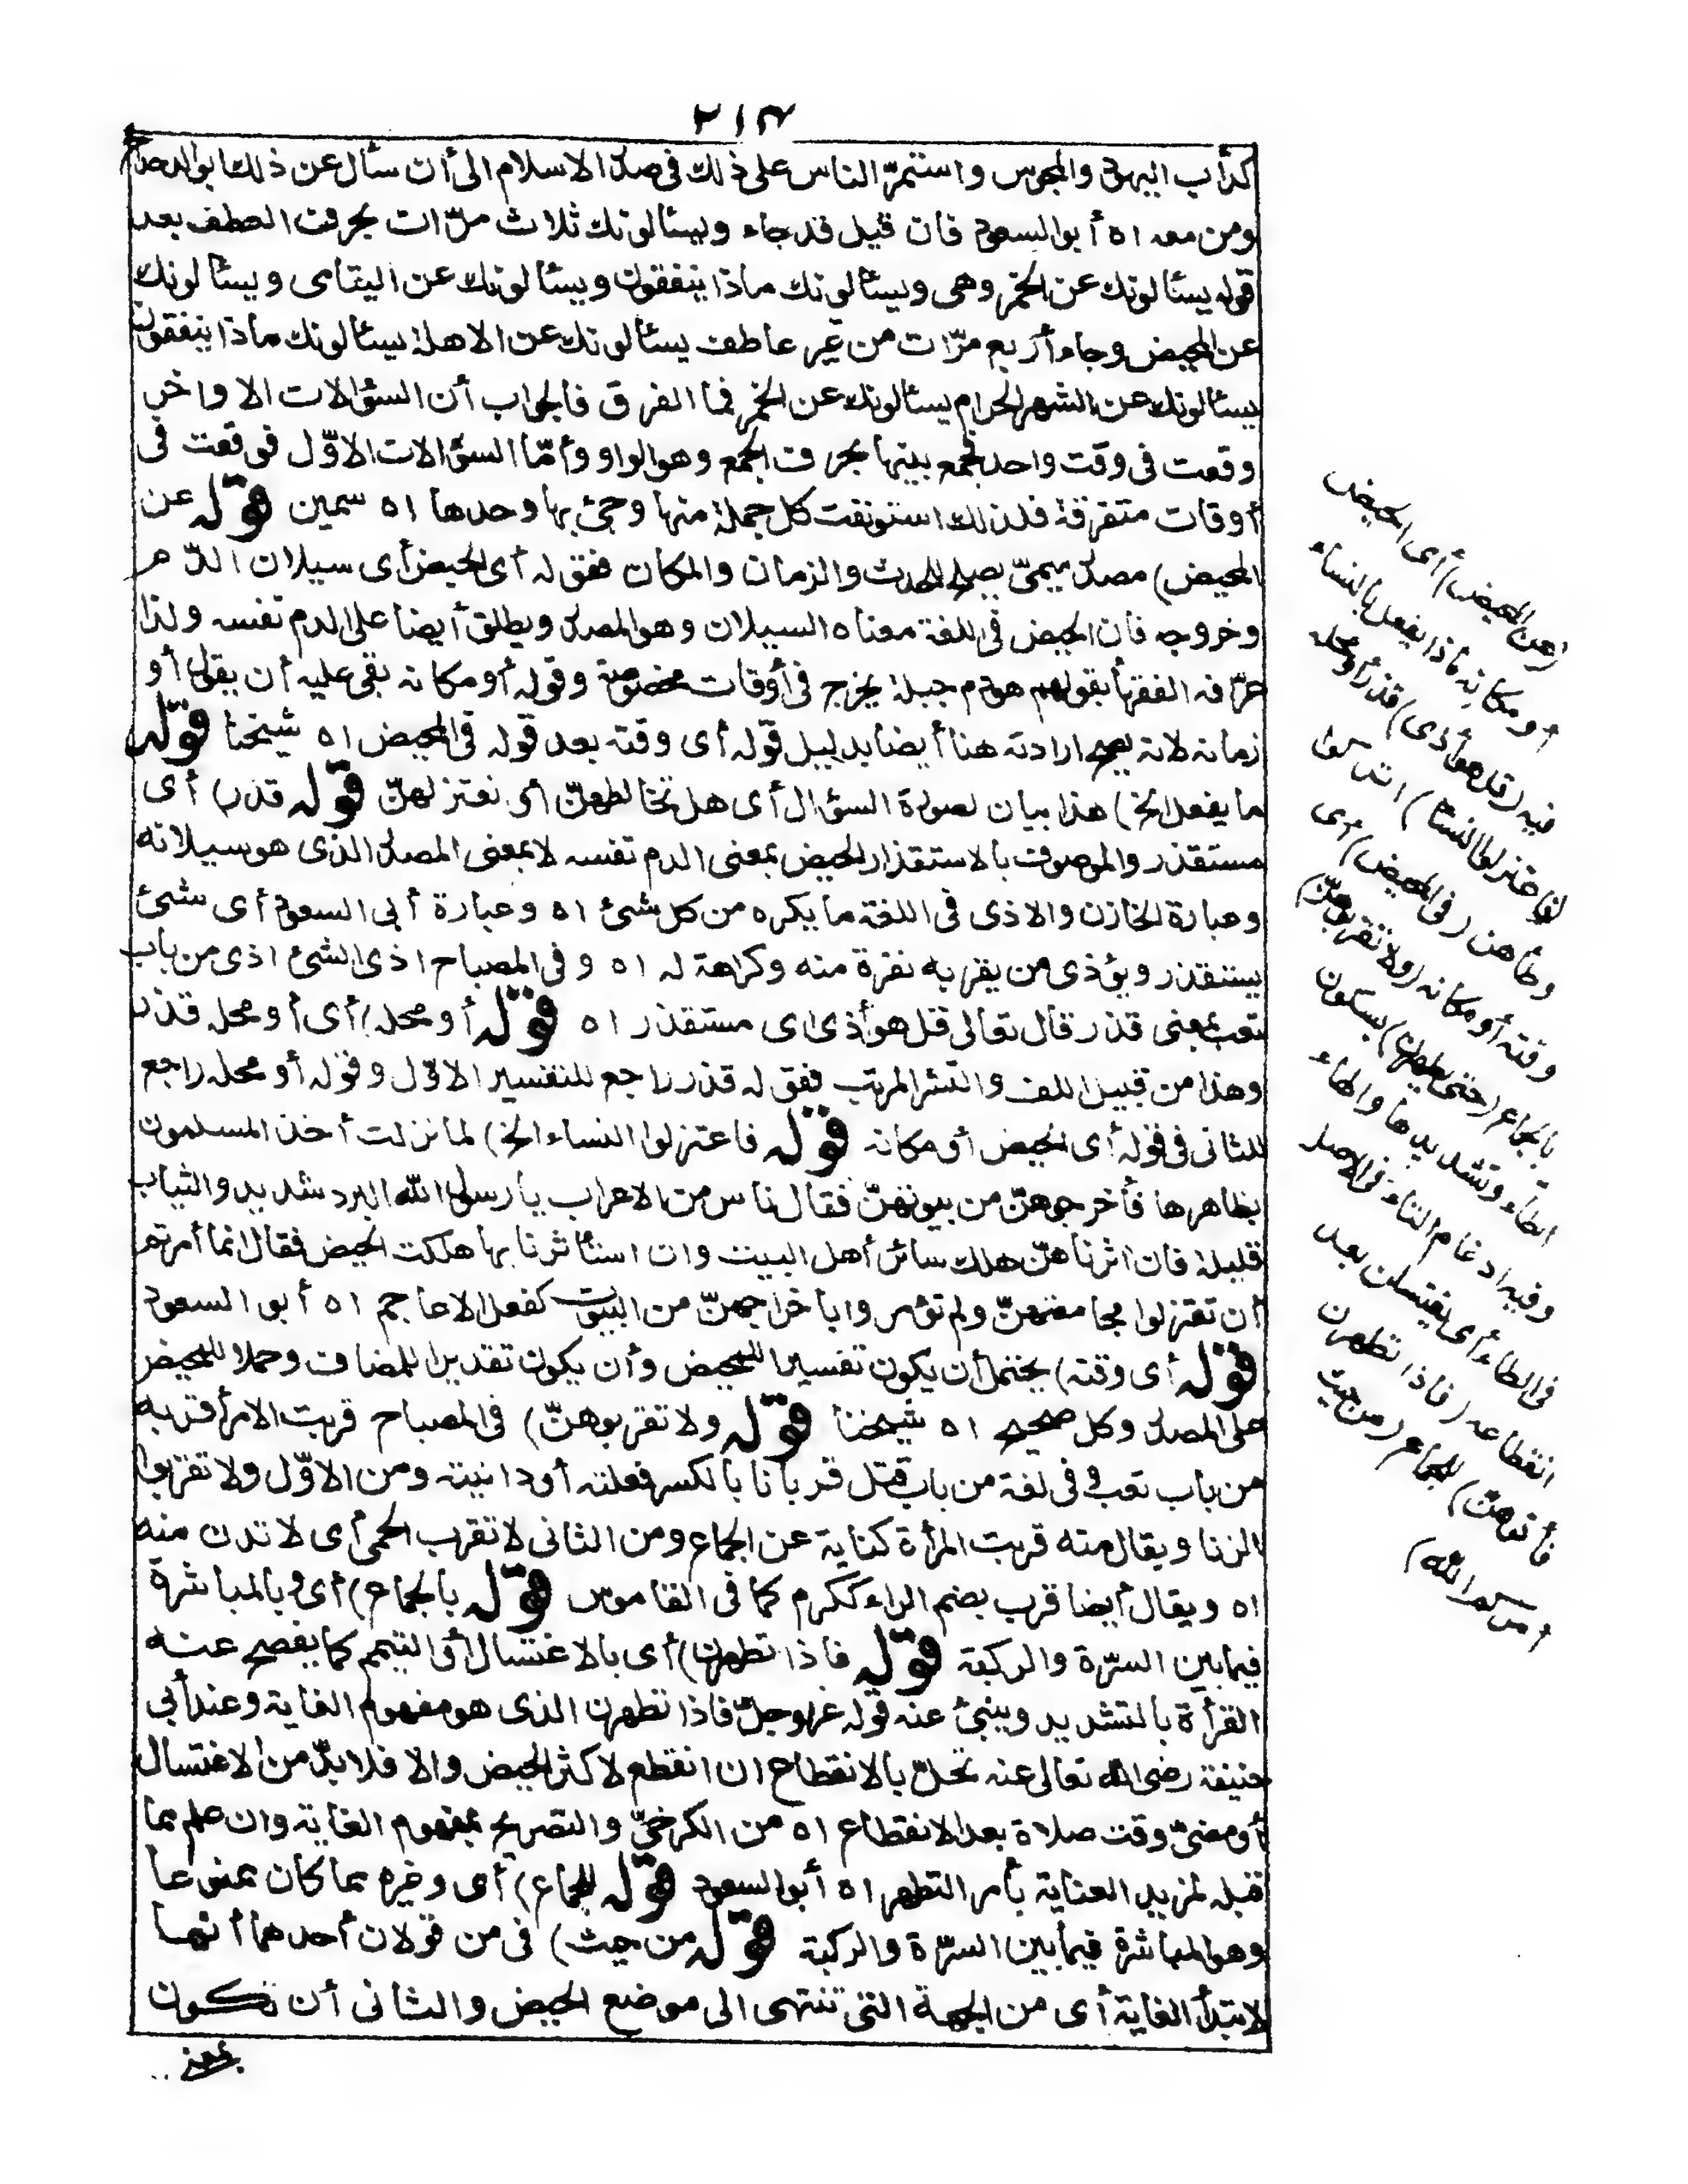 ٢١٤
كدأب اليهود والمجوس واستمرّ الناس على ذلك فى صدر الاسلام الى أن سأل عن ذلك ابوالدحداح
ومن معه اه أبوالسعود فان قيل قد جاء ويسئالونك ثلاث مرّات بحرف العطف بعد
قوله يسئالونك عن الخمر وهى ويسئالونك ماذا ينفقون ويسئالونك عن اليتامى ويسئالونك
عن المحيض وجاء أربع مرّات من غير عاطف يسئالونك عن الاهلة يسئالونك ماذا ينفقون
يسئالونك عن الشهر الحرام يسئالونك عن الخمر فما الفرق فالجواب أن السؤالات الاواخر
وقعت فى وقت واحد فجمع بينها بحرف الجمع وهوالواو وأمّا السؤالات الاوّل فوقعت فى
أوقات متفرقة فلذلك استونفت كل جملة منها وجئ بها وحدها اه سمين قوله عن
المحيض) مصدر ميمىّ يصلح للحدث والزمان والمكان فقوله أى الحيض أى سيلان الدّم
وخروجه فان الحيض فى اللغة معناه السيلان وهوالمصدر ويطلق أيضا على الدم نفسه ولذا
عرّفه الفقهأ بقولهم هودم جبلة يخرج فى أوقات مخصوصة وقوله أو مكانه بقى عليه أن يقول أو
زمانه لانه يصح ارادته هنا أيضا بدليل قوله أى وقته بعد قوله فى المحيض اه شيخنا قوله
ما يفعل الخ) هذا بيان لصورة السؤال أى هل تخالطهنّ أى نعتزلهنّ قوله قذر) أى
مستقذر والموصوف بالاستقذار الحيض بمعنى الدم نفسه لابمعنى المصدر الذى هوسيلانه
وعبارة الخازن والاذى فى اللغة ما يكره من كل شئ اه وعبارة أبى السعود أى شئ
يستقذر ويؤذى من يقربه نفرة منه وكراهة له اه وفى المصباح اذى الشئ اذى من باب
تعب بمعنى قذر قال تعالى قل هوأذى اى مستقذر اه قوله أو محله) أى أو محله قذر
وهذا من قبيل اللف والنشر المرتب فقوله قذر راجع للتفسير الاوّل وقوله أو محله راجع
للثانى فى قوله أى الحيض أو مكانه قوله فاعتزلوا النساء الخ) لما نزلت أخذ المسلمون
بظاهرها فأخرجوهنّ من بيوتهنّ فقال ناس من الاعراب يارسول الله البرد شديد والثياب
قليلة فان اثرناهنّ هلك سائر أهل البيت وان استأثرنا بها هلكت الحيض فقال انما أمرتم
أن تعتزلوا مجامعتهنّ ولم تؤمروا باخراجهنّ من البيوت كفعل الاعاجم اه أبو السعود
قوله أى وقته) يحتمل أن يكون تفسيرا للمحيض وأن يكون تقديرا للمضاف وحملا للمحيض
على المصدر وكل صحيح اه شيخنا قوله ولا تقربوهنّ) فى المصباح قربت الامر أقربه
من باب تعب وفى لغة من باب قتل قربانا بالكسر فعلته أو دانيته ومن الاوّل ولا تقربوا
الزنا ويقال منه قربت المرأة كناية عن الجماع ومن الثانى لا تقرب الحمى أى لا تدن منه
اه ويقال أيضا قرب بضم الراء ككرم كما فى القاموس قوله بالجماع) أى وبالمباشرة
فيما بين السرّة والركبة قوله فاذا تطهرن) أى بالاغتسال أو التيمم كما يفصح عنه
القرأة بالتشديد وينبئ عنه قوله عزوجلّ فاذا تطهرن الذى هو مفهوم الغاية وعند أبى
حنيفة رضى الله تعالى عنه تحلّ بالانقطاع ان انقطع لاكثر الحيض والا فلابدّ من الاغتسال
أو مضىّ وقت صلاة بعد الانقطاع اه من الكرخىّ والتصريح بمفهوم الغاية وان علم مما
قبله لمزيد العناية بأمر التطهر اه أبوالسعود قوله للجماع) أى وغيره مما كان ممنوعا
وهوالمباشرة فيما بين السرّة والركبة قوله من حيث) فى من قولان أحدهما أنها
لابتدأ الغاية أى من الجهة التى تنتهى الى موضع الحيض والثانى أن تكون
بمعنى
(عن المحيض) أى الحيض
أو مكانه ماذا يفعل بالنساء
فيه (قل هو أذى) قذر أو محله
(فاعتزلوا النسأ) اتركوا
وطأهن (فى المحيض) أى
وقته أو مكانه (ولا تقربوهنّ)
بالجماع (حتى يطهرن) بسكون
الطاء وتشديدها والهاء
وفيه ادغام التاء فى الاصل
فى الطاء أى يغتسلن بعد
انقطاعه (فاذا تطهرن
فأتوهنّ) للجماع (من حيث
أمركم الله)